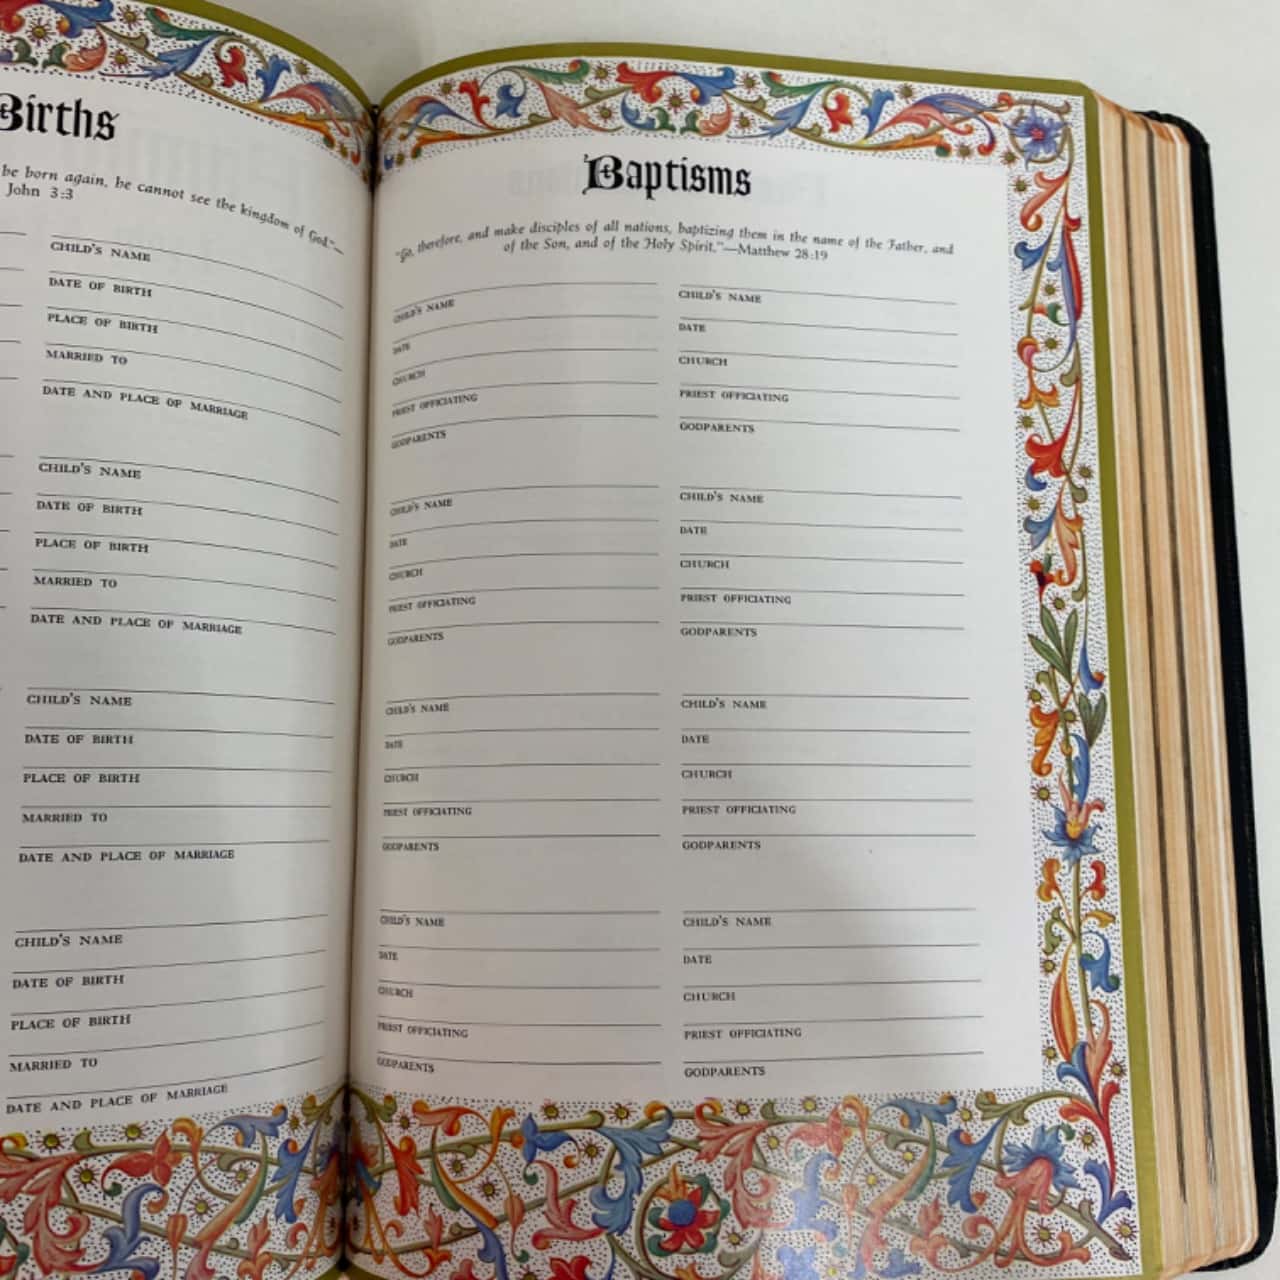 Births
be born again, he cannot see the kingdom of God."—
John 3:3
CHILD'S NAME
DATE OF BIRTH
PLACE OF BIRTH
MARRIED TO
DATE AND PLACE OF MARRIAGE
CHILD'S NAME
DATE OF BIRTH
PLACE OF BIRTH
MARRIED TO
DATE AND PLACE OF MARRIAGE
CHILD'S NAME
DATE OF BIRTH
PLACE OF BIRTH
MARRIED TO
DATE AND PLACE OF MARRIAGE
CHILD'S NAME
DATE OF BIRTH
PLACE OF BIRTH
MARRIED TO
DATE AND PLACE OF MARRIAGE
Baptisms
"Go, therefore, and make disciples of all nations, baptizing them in the name of the Father, and
of the Son, and of the Holy Spirit."—Matthew 28:19
CHILD'S NAME
DATE
CHURCH
PRIEST OFFICIATING
GODPARENTS
CHILD'S NAME
DATE
CHURCH
PRIEST OFFICIATING
GODPARENTS
CHILD'S NAME
DATE
CHURCH
PRIEST OFFICIATING
GODPARENTS
CHILD'S NAME
DATE
CHURCH
PRIEST OFFICIATING
GODPARENTS
CHILD'S NAME
DATE
CHURCH
PRIEST OFFICIATING
GODPARENTS
CHILD'S NAME
DATE
CHURCH
PRIEST OFFICIATING
GODPARENTS
CHILD'S NAME
DATE
CHURCH
PRIEST OFFICIATING
GODPARENTS
CHILD'S NAME
DATE
CHURCH
PRIEST OFFICIATING
GODPARENTS